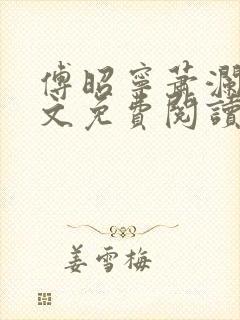 傅昭寧蕭瀾
文免費閱讀
姜雪梅